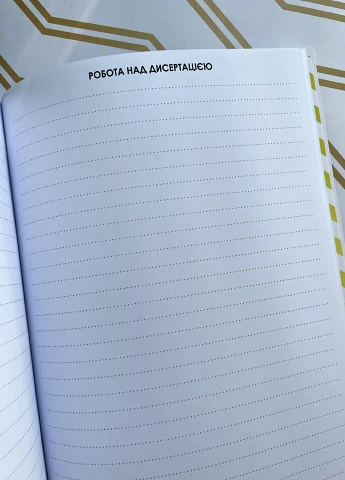 РОБОТА НАД ДИСЕРТАЦІЄЮ